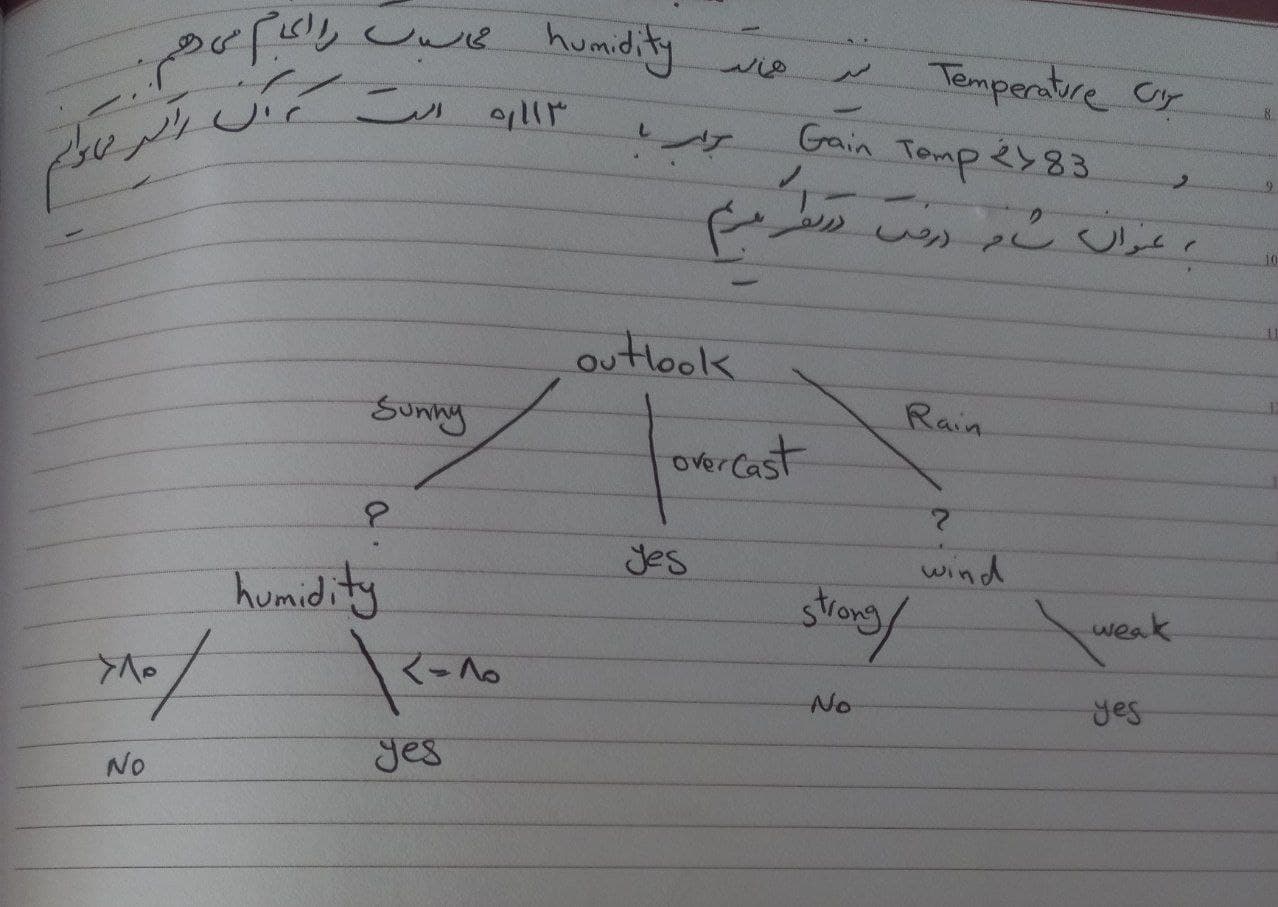 برای Temperature نیز همانند humidity محاسبات را انجام می دهیم
و Gain Temp <> 83 برابر با ۰,۱۱۳ است که آن را نیز می توانیم
به عنوان شاخه درخت در نظر بگیریم
outlook
Sunny
overcast
Rain
?
yes
?
humidity
wind
>۸۰
<=۸۰
strong
weak
No
yes
No
yes
8
9
10
11